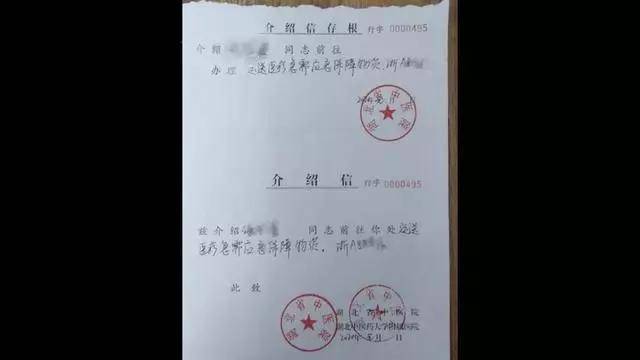 介绍信存根 行字 0000495
介绍 同志前往
办理 运送医疗急需应急保障物资.浙A
湖北省中医院
介绍信 行字 0000495
兹介绍 同志前往你处运送
医疗急需应急保障物资.浙A
此致
湖北省中医院
湖北省中医院
湖北中医药大学附属医院